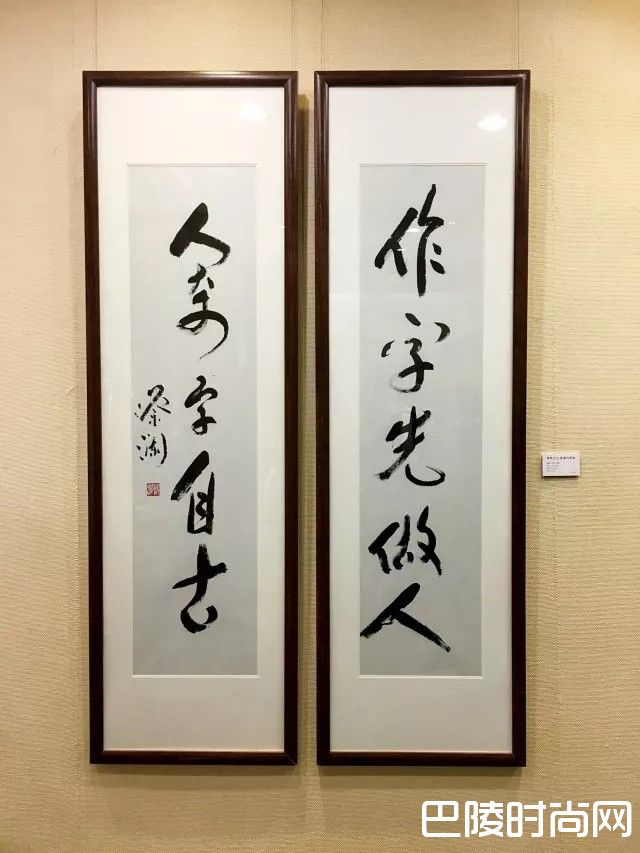 作字先做人
人奇字自古
蔡澜
巴陵时尚网